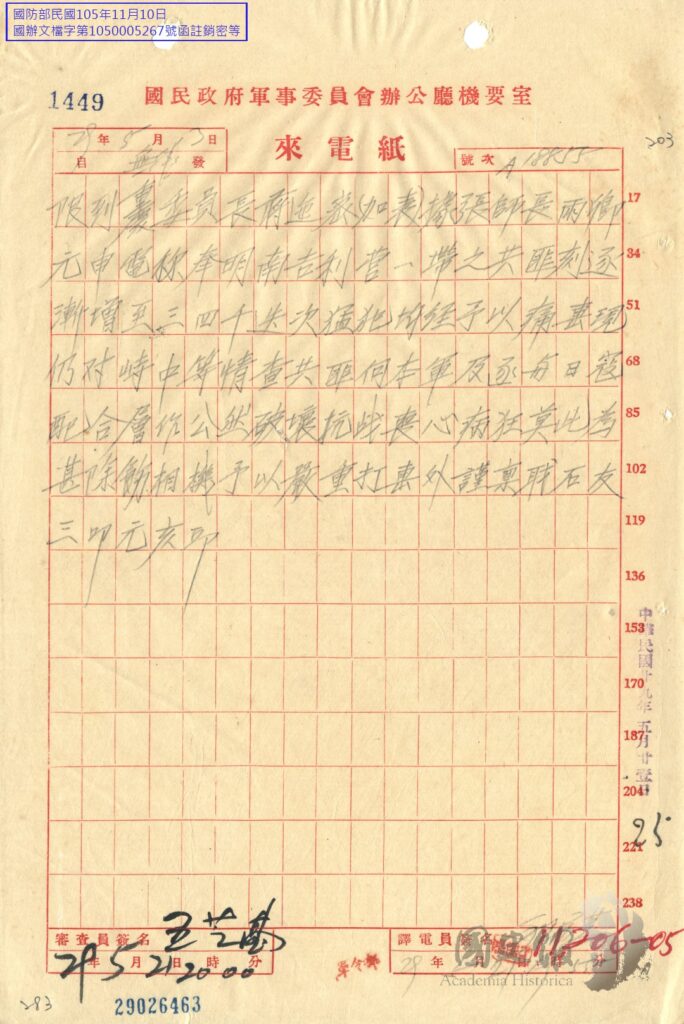 國防部民國105年11月10日
國辦文檔字第1050005267號函註銷密等
1449
國民政府軍事委員會辦公廳機要室
29年5月3日
自 無線 發
來電紙
號次 A 18855
203
限列委員長蔣近密加表據張師長雨鄉
17
元申電稱奉明南吉利營一帶之共匪刻逐
34
漸增至三四千迭次猛犯均經予以痛擊現
51
仍对峙中等情查共匪伺本軍及逐每日寇
68
配合層作公然破壞抗战喪心病狂莫此為
85
甚除飭相機予以嚴重打擊外謹稟職石友
102
三叩元亥印
119
136
153
170
187
204
221
238
中華民國廿九年五月廿壹日
25
審查員簽名
29年5月21日20時00分
譯電員簽名
年 月 日 時 分
11206-05
國史館
Academia Historica
283
29026463